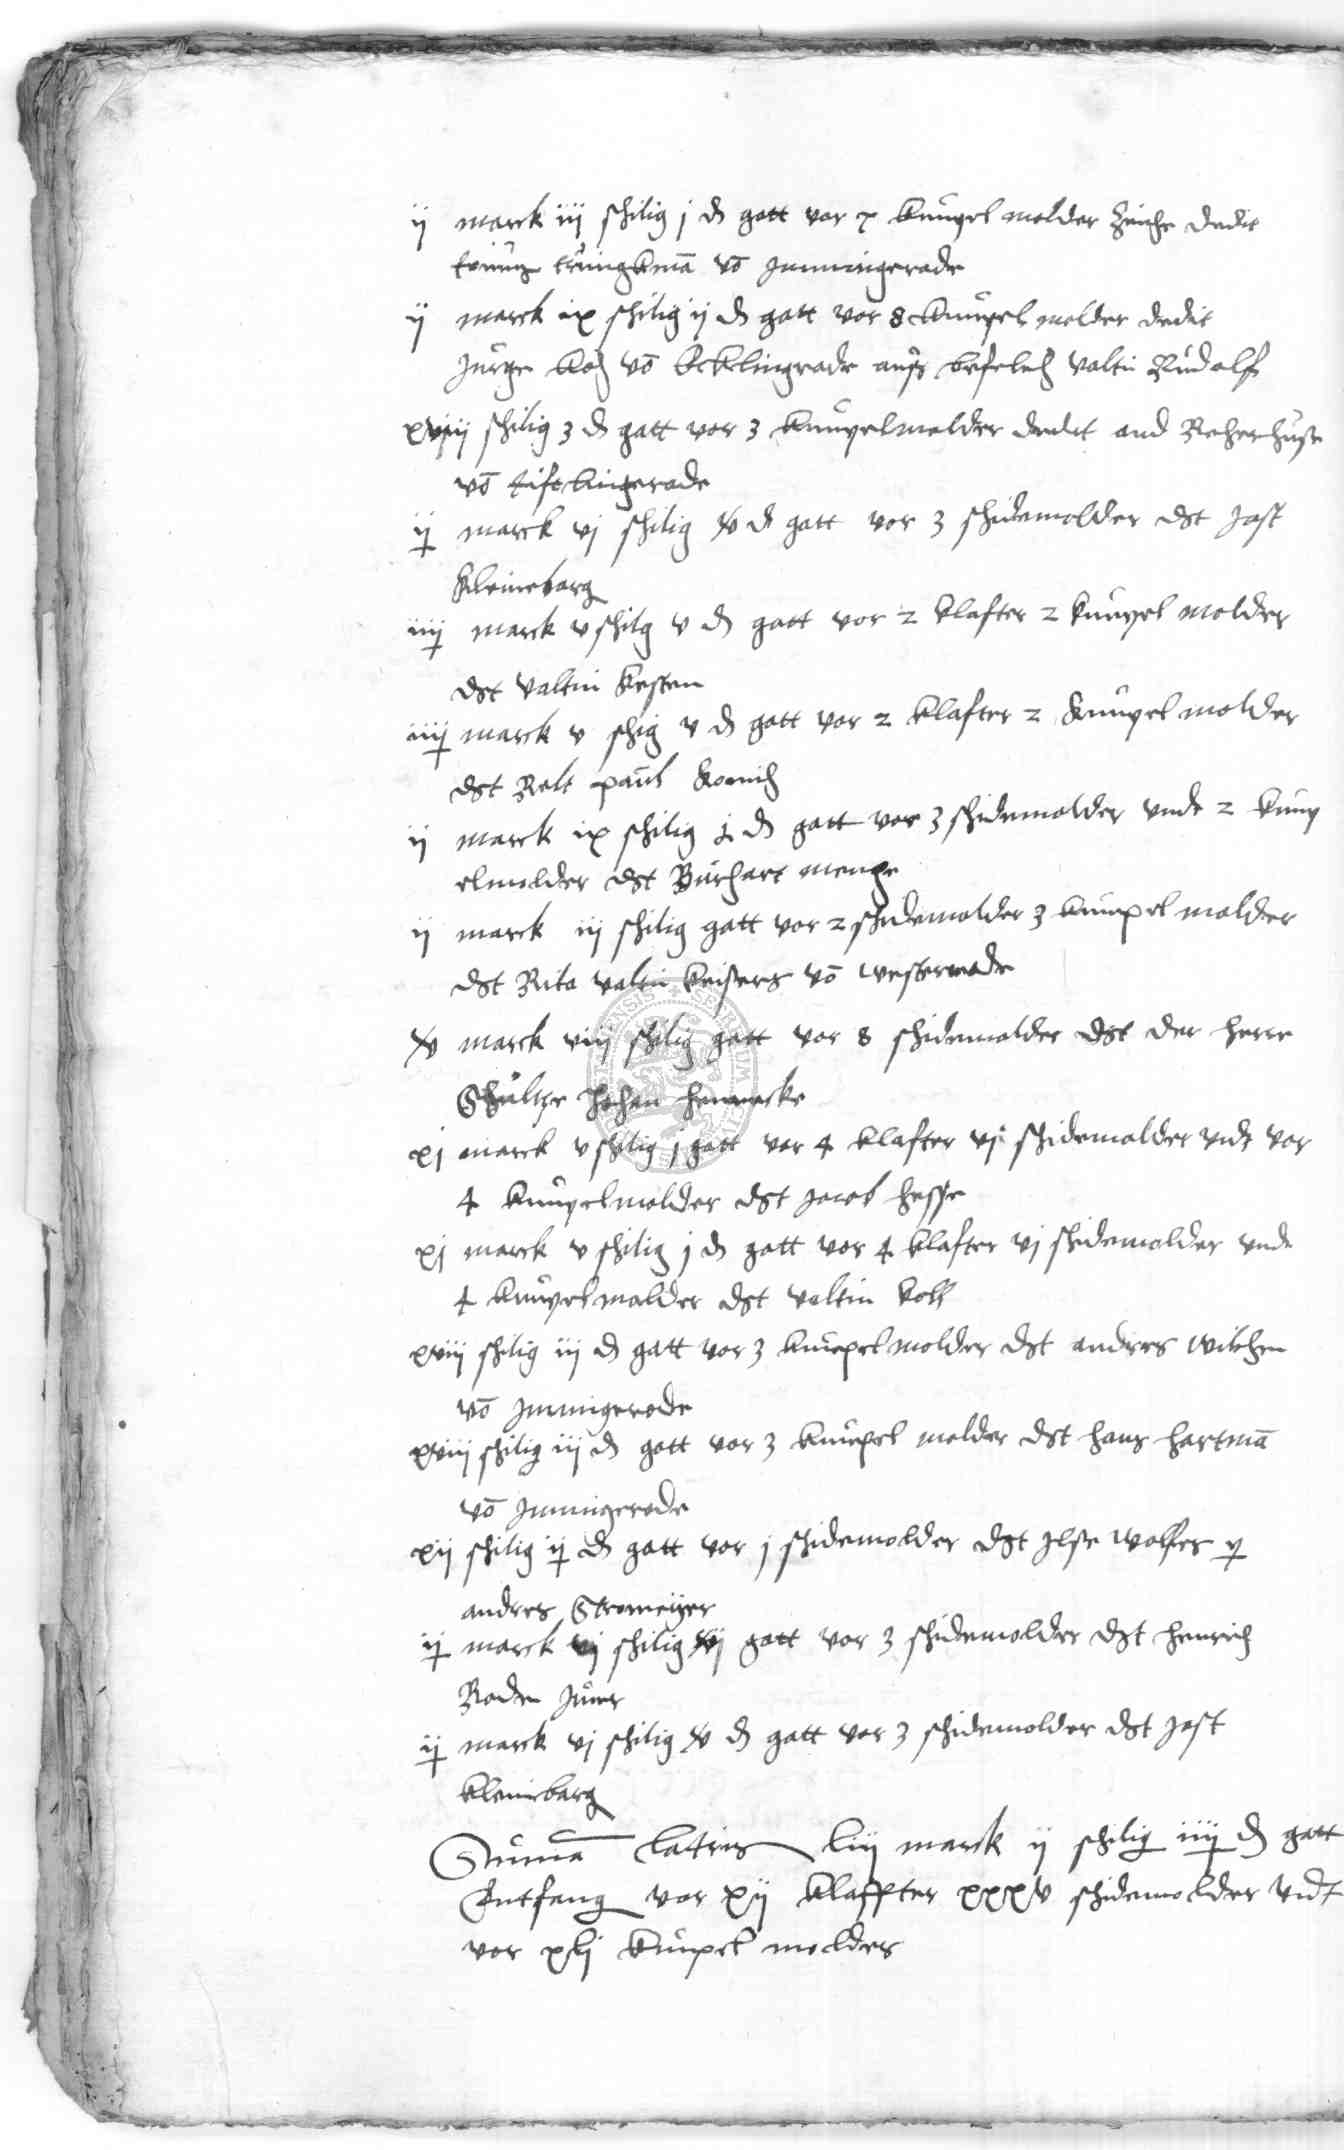 ij marck iij schilig j d gott vor 7 knuppel molder Zeiche dedit
tringkmā vō Jmmingerade
ij marck ix schilig ij d gott vor 8 knuppel molder dedit
Jurge Koch vō Ecklingrade auß befelch Valtin Rudolf
xviij schilig 3 d gott vor 3 knuppelmolder dedit and
vō tistlingerade
ij marck vj schilig d gott vor 3 schidemolder dst Jost
kleineborg
iiij marck v schilg v d gott vor 2 klafter 2 knuppel molder
dst Valtin kesten
iiij marck v schig v d gott vor 2 klafter 2 knuppel molder
dst Relt paul
ij marck ix schilig j d gott vor 3 schidemolder vnde 2 knup
elmolder dst Burchart menge
ij marck iij schilig gott vor 2 schidemolder 3 knuppel molder
dst Rita valtin keisers vō westerrode
marck viij schilig gott vor 8 schidemolder dst der herre
Schultze Johan hennecke
xj marck v schilig j gott vor 4 klafter vj schidemolder vnde vor
4 knuppelmolder dst Jacob hesse
xj marck v schilig j d gott vor 4 klafter vj schidemolder vnde
4 knuppelmolder dst valtin koll
xviij schilig iij d gott vor 3 knuppel molder dst andres wilchen
vō Jmmigerode
xviij schilig iij d gott vor 3 knuppel molder dst hans hartmā
vō Jmmigerode
xij schilig ij d gott vor j schidemolder dst Jlse wolfes
andres Stromeijer
ij marck vj schilig gott vor 3 schidemolder dst henrich
Roden
ij marck vj schilig d gott vor 3 schidemolder dst Jost
kleineborg
Summa latris liij marck ij schilig iiij d gott
Entfang vor xij klaffter xxxv schidemolder vnde
vor xlj knuppel molder